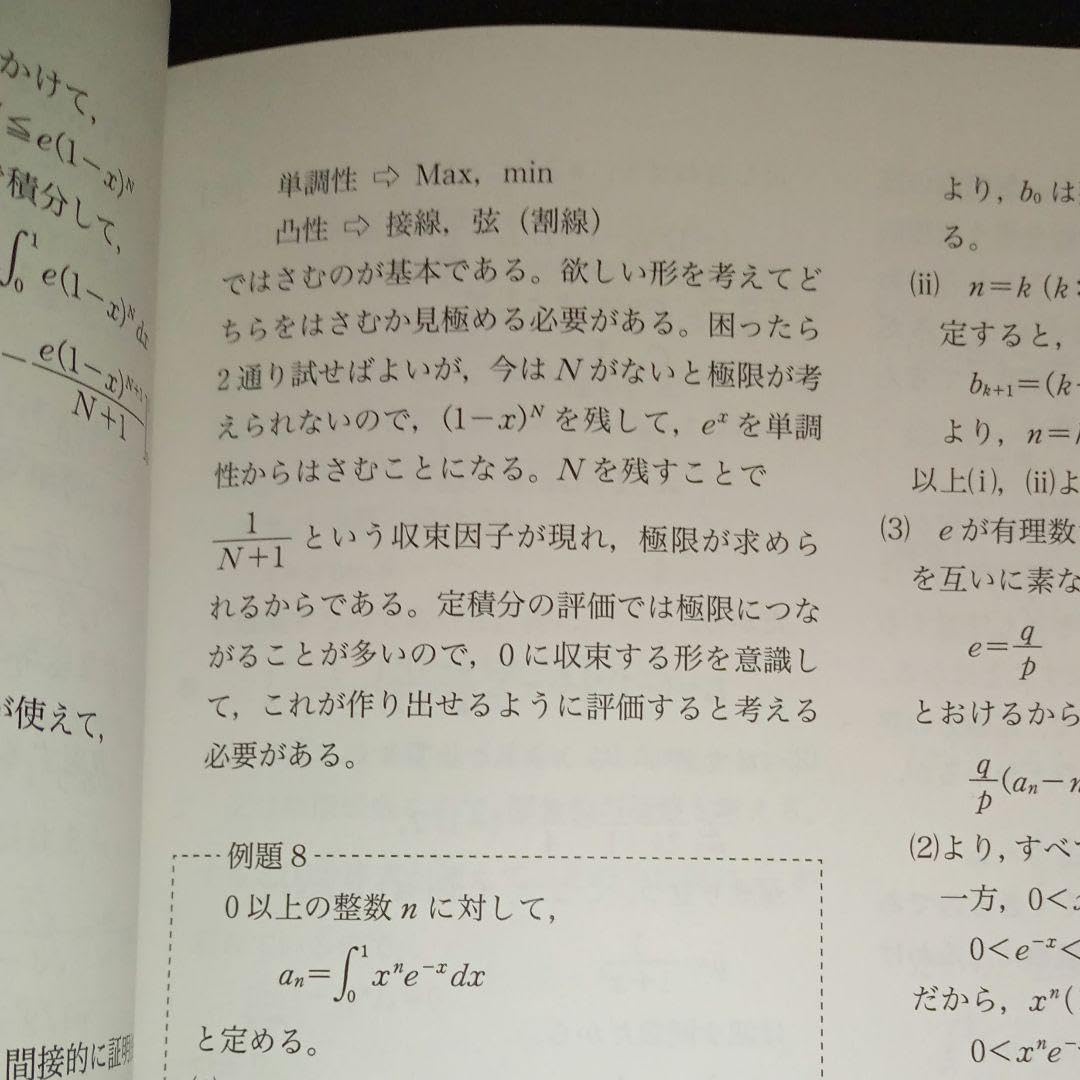 かけて,
≦e(1−x)^N
積分して,
∫_0^1 e(1−x)^N dx
−\frac{e(1−x)^{N+1}}{N+1}
が使えて,
間接的に証明
単調性 ⇨ Max, min
凸性 ⇨ 接線, 弦（割線）
ではさむのが基本である。欲しい形を考えてど
ちらをはさむか見極める必要がある。困ったら
2通り試せばよいが, 今は N がないと極限が考
えられないので, (1−x)^N を残して, e^x を単調
性からはさむことになる。N を残すことで
\frac{1}{N+1} という収束因子が現れ, 極限が求めら
れるからである。定積分の評価では極限につな
がることが多いので, 0 に収束する形を意識し
て, これが作り出せるように評価すると考える
必要がある。
例題 8
0 以上の整数 n に対して,
a_n=∫_0^1 x^n e^{−x} dx
と定める。
より, b_0 は
る。
(ii) n=k (k
定すると,
b_{k+1}=(k
より, n=
以上(i), (ii)よ
(3) e が有理数
を互いに素な
e=\frac{q}{p}
とおけるから
\frac{q}{p}(a_n−
(2)より, すべ
一方, 0<
0<e^{−x}<
だから, x^n(
0<x^n e^−